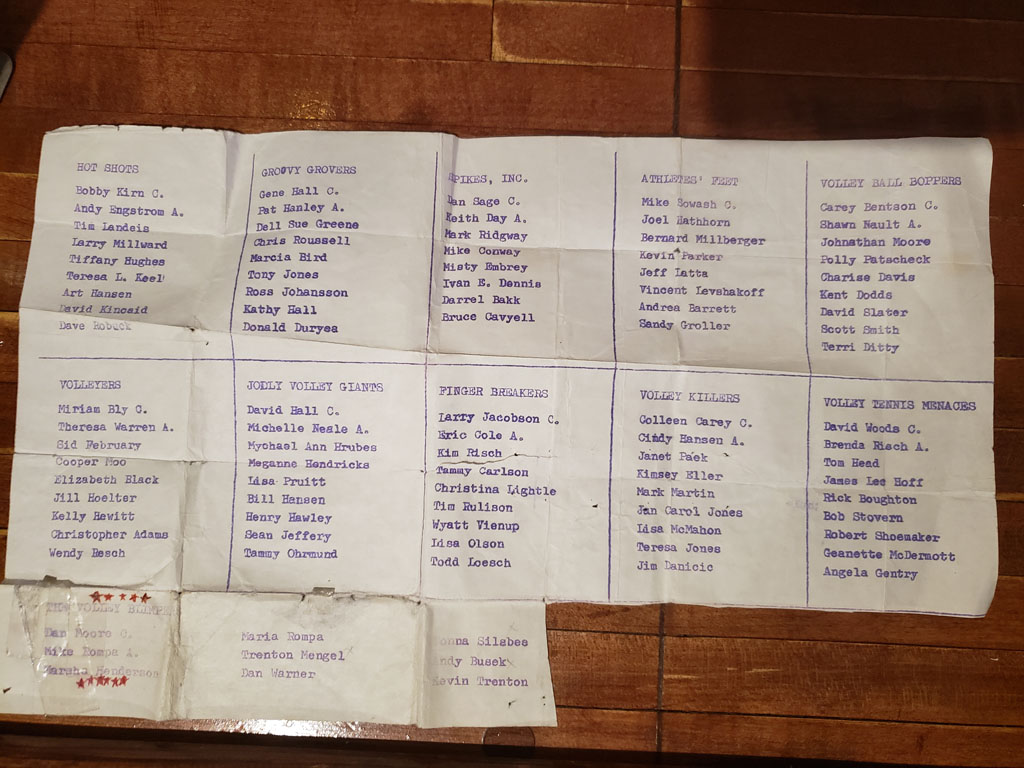 HOT SHOTS
Bobby Kirn C.
Andy Engstrom A.
Tim Landeis
Larry Millward
Tiffany Hughes
Teresa L. Keel
Art Hansen
David Kincaid
Dave Robuck
GROOVY GROVERS
Gene Hall C.
Pat Hanley A.
Dell Sue Greene
Chris Roussell
Marcia Bird
Tony Jones
Ross Johansson
Kathy Hall
Donald Duryea
SPIKES, INC.
Dan Sage C.
Keith Day A.
Mark Ridgway
Mike Conway
Misty Embrey
Ivan E. Dennis
Darrel Bakk
Bruce Cavyell
ATHLETES' FEET
Mike Sowash C.
Joel Hathhorn
Bernard Millberger
Kevin Parker
Jeff Latta
Vincent Levshakoff
Andrea Barrett
Sandy Groller
VOLLEY BALL BOPPERS
Carey Bentson C.
Shawn Nault A.
Johnathan Moore
Polly Patscheck
Charise Davis
Kent Dodds
David Slater
Scott Smith
Terri Ditty
VOLLEYERS
Miriam Bly C.
Theresa Warren A.
Sid February
Cooper Moo
Elizabeth Black
Jill Hoelter
Kelly Hewitt
Christopher Adams
Wendy Resch
JODLY VOLLEY GIANTS
David Hall C.
Michelle Neale A.
Mychael Ann Hrubes
Meganne Hendricks
Lisa Pruitt
Bill Hansen
Henry Hawley
Sean Jeffery
Tammy Ohrmund
FINGER BREAKERS
Larry Jacobson C.
Eric Cole A.
Kim Risch
Tammy Carlson
Christina Lightle
Tim Rulison
Wyatt Vienup
Lisa Olson
Todd Loesch
VOLLEY KILLERS
Colleen Carey C.
Cindy Hansen A.
Janet Paek
Kimsey Eller
Mark Martin
Jan Carol Jones
Lisa McMahon
Teresa Jones
Jim Danicic
VOLLEY TENNIS MENACES
David Woods C.
Brenda Risch A.
Tom Head
James Lee Hoff
Rick Boughton
Bob Stovern
Robert Shoemaker
Geanette McDermott
Angela Gentry
THE VOLLEY
Dan Moore C.
Mike Rompa A.
Marsha Henderson
Maria Rompa
Trenton Mengel
Dan Warner
onna Silsbee
ndy Busek
Kevin Trenton